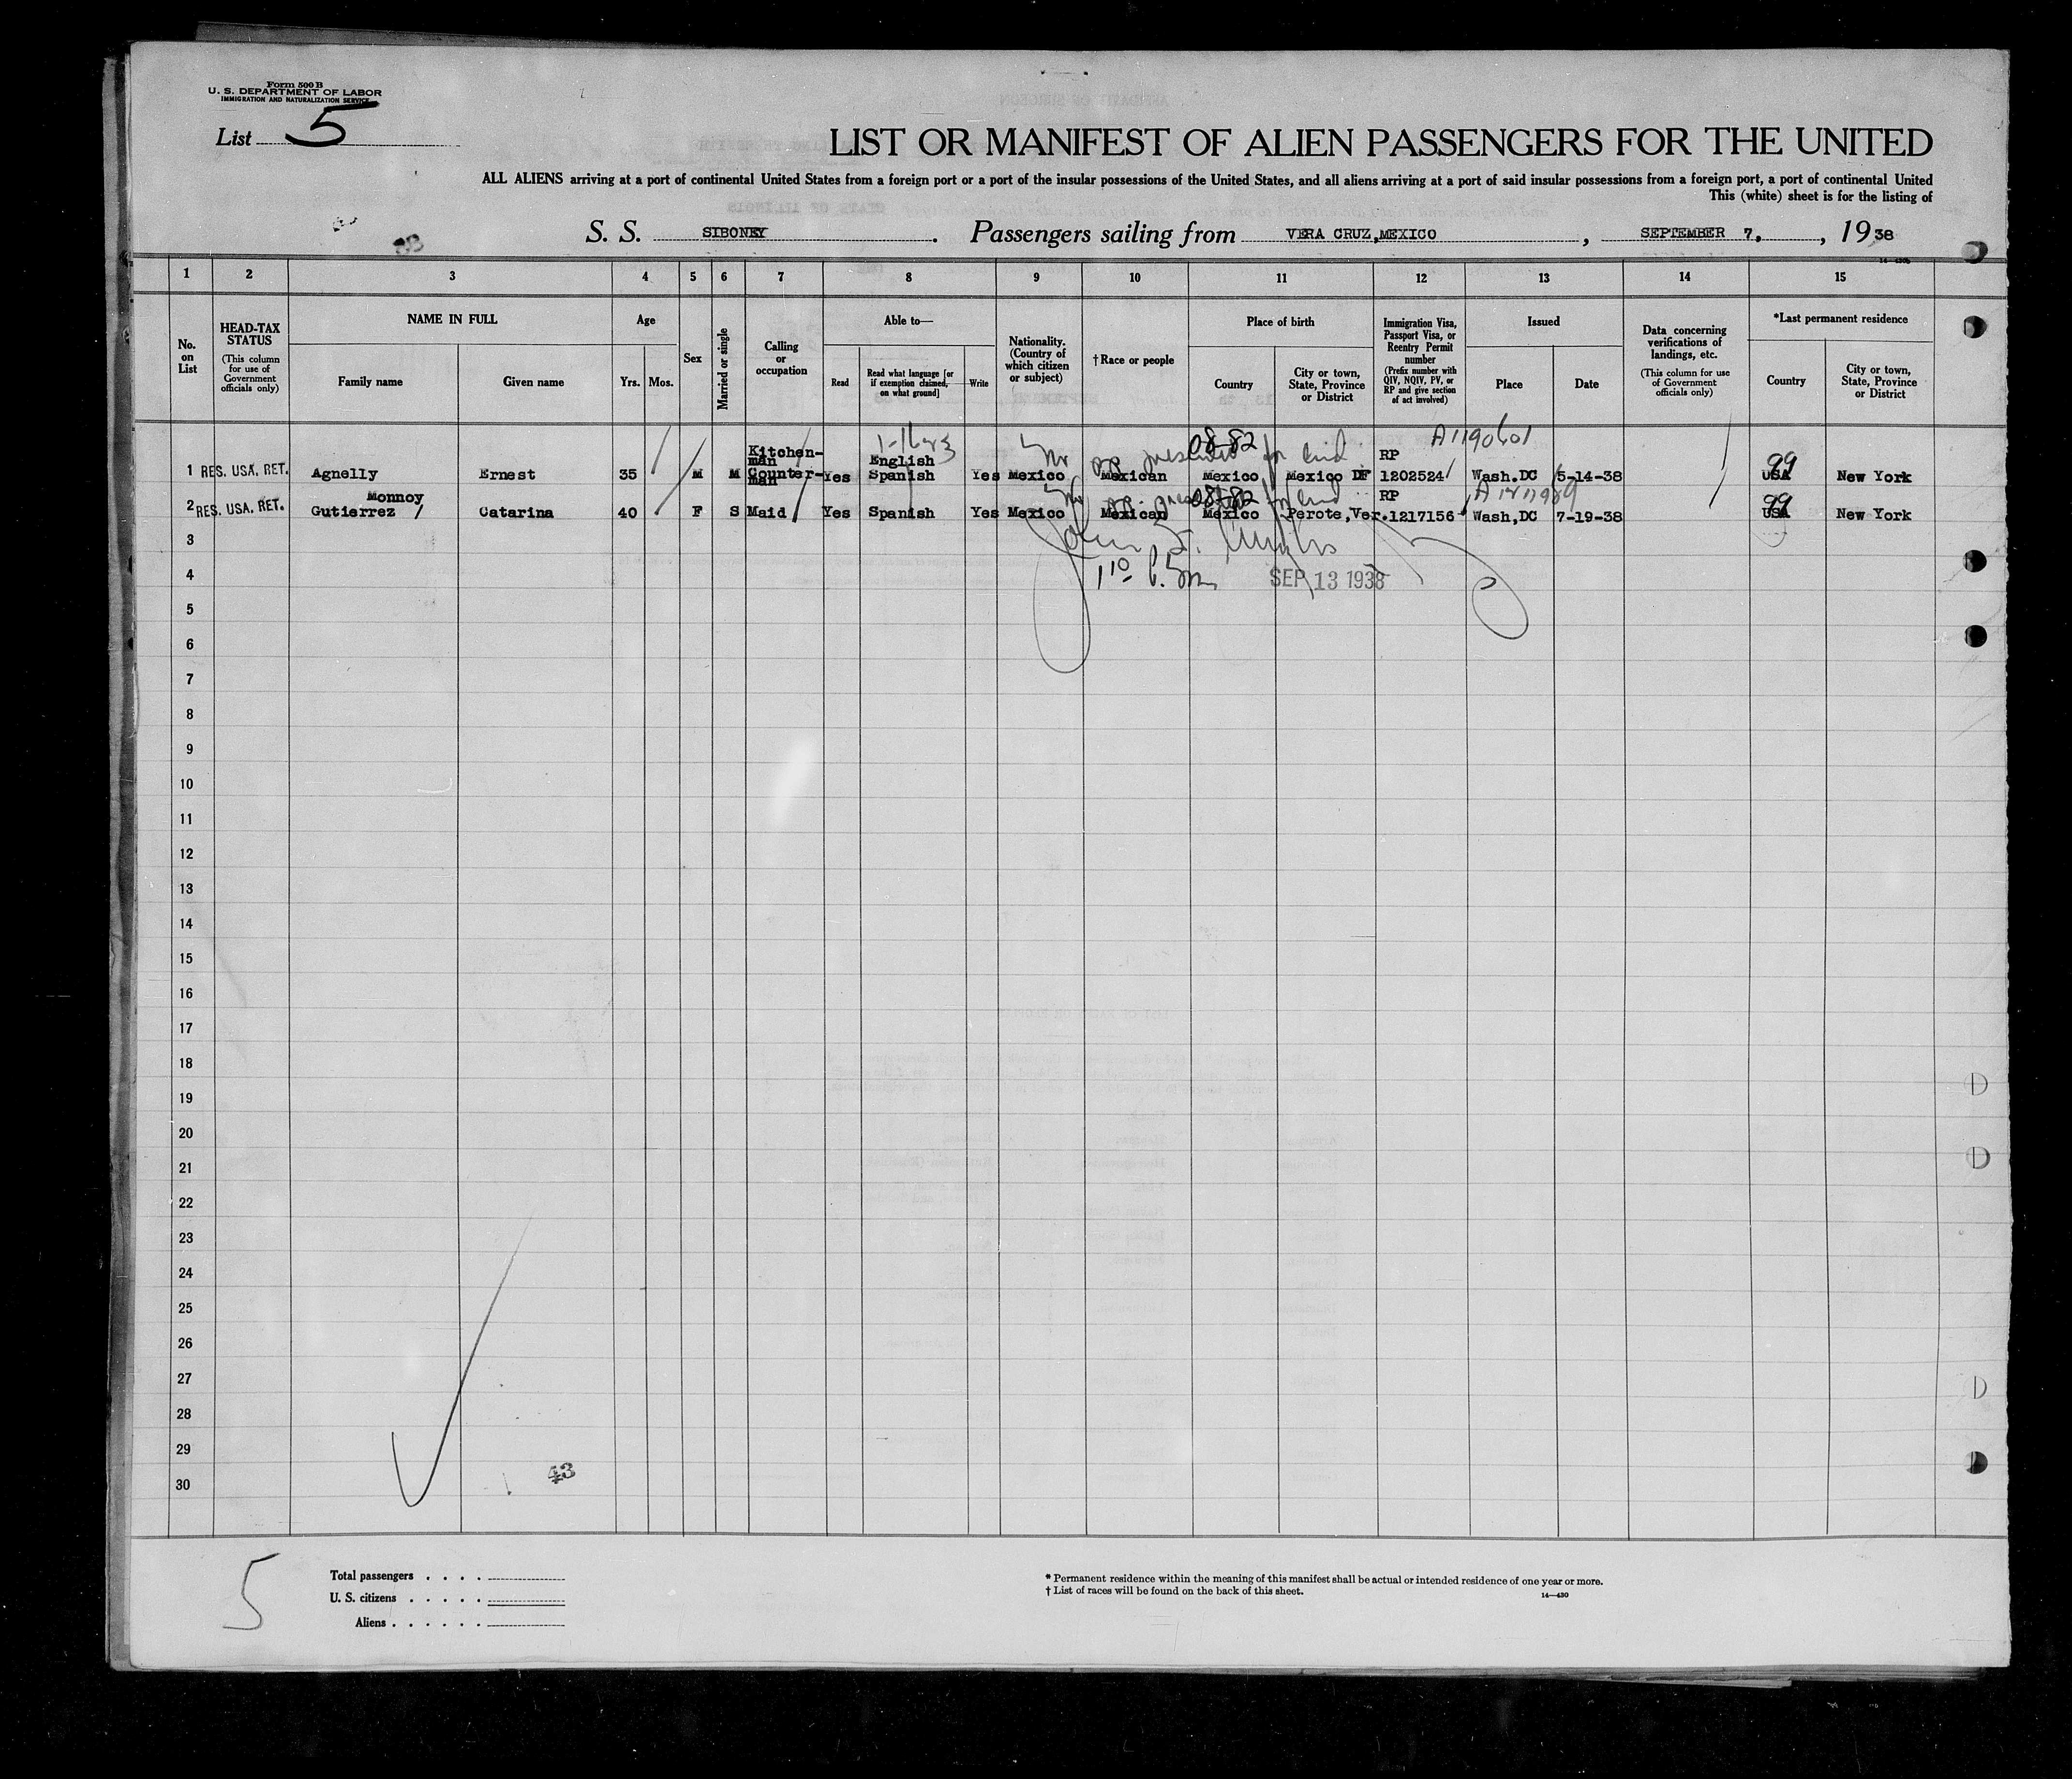 Form 500 B
U. S. DEPARTMENT OF LABOR
IMMIGRATION AND NATURALIZATION SERVICE
List 5
LIST OR MANIFEST OF ALIEN PASSENGERS FOR THE UNITED
ALL ALIENS arriving at a port of continental United States from a foreign port or a port of the insular possessions of the United States, and all aliens arriving at a port of said insular possessions from a foreign port, a port of continental United
This (white) sheet is for the listing of
S. S. SIBONEY. Passengers sailing from VERA CRUZ, MEXICO, SEPTEMBER 7, , 1938
1 2 3 4 5 6 7 8 9 10 11 12 13 14 15
No. on List
HEAD-TAX STATUS (This column for use of Government officials only)
NAME IN FULL
Family name
Given name
Age
Yrs. Mos.
Sex
Married or single
Calling or occupation
Able to—
Read
Read what language [or if exemption claimed, on what ground]
Write
Nationality. (Country of which citizen or subject)
†Race or people
Place of birth
Country
City or town, State, Province or District
Immigration Visa, Passport Visa, or Reentry Permit number (Prefix number with QIV, NQIV, PV, or RP and give section of act involved)
Issued
Place
Date
Data concerning verifications of landings, etc. (This column for use of Government officials only)
*Last permanent residence
Country
City or town, State, Province or District
08-82 A1190601
Kitchen-man English RP 99
1 RES. USA. RET. Agnelly Ernest 35 M M Counter-man Yes Spanish Yes Mexico Mexican Mexico Mexico DF 1202524 Wash,DC 5-14-38 USA New York
Monnoy 08-82 RP 99
2 RES. USA. RET. Gutierrez Catarina 40 F S Maid Yes Spanish Yes Mexico Mexican Mexico Perote,Ver. 1217156 Wash,DC 7-19-38 USA New York
3
4 SEP 13 1938
5
6
7
8
9
10
11
12
13
14
15
16
17
18
19
20
21
22
23
24
25
26
27
28
29
30
43
5
Total passengers . . . .
U. S. citizens . . . . .
Aliens . . . . . .
* Permanent residence within the meaning of this manifest shall be actual or intended residence of one year or more.
† List of races will be found on the back of this sheet.
14—430